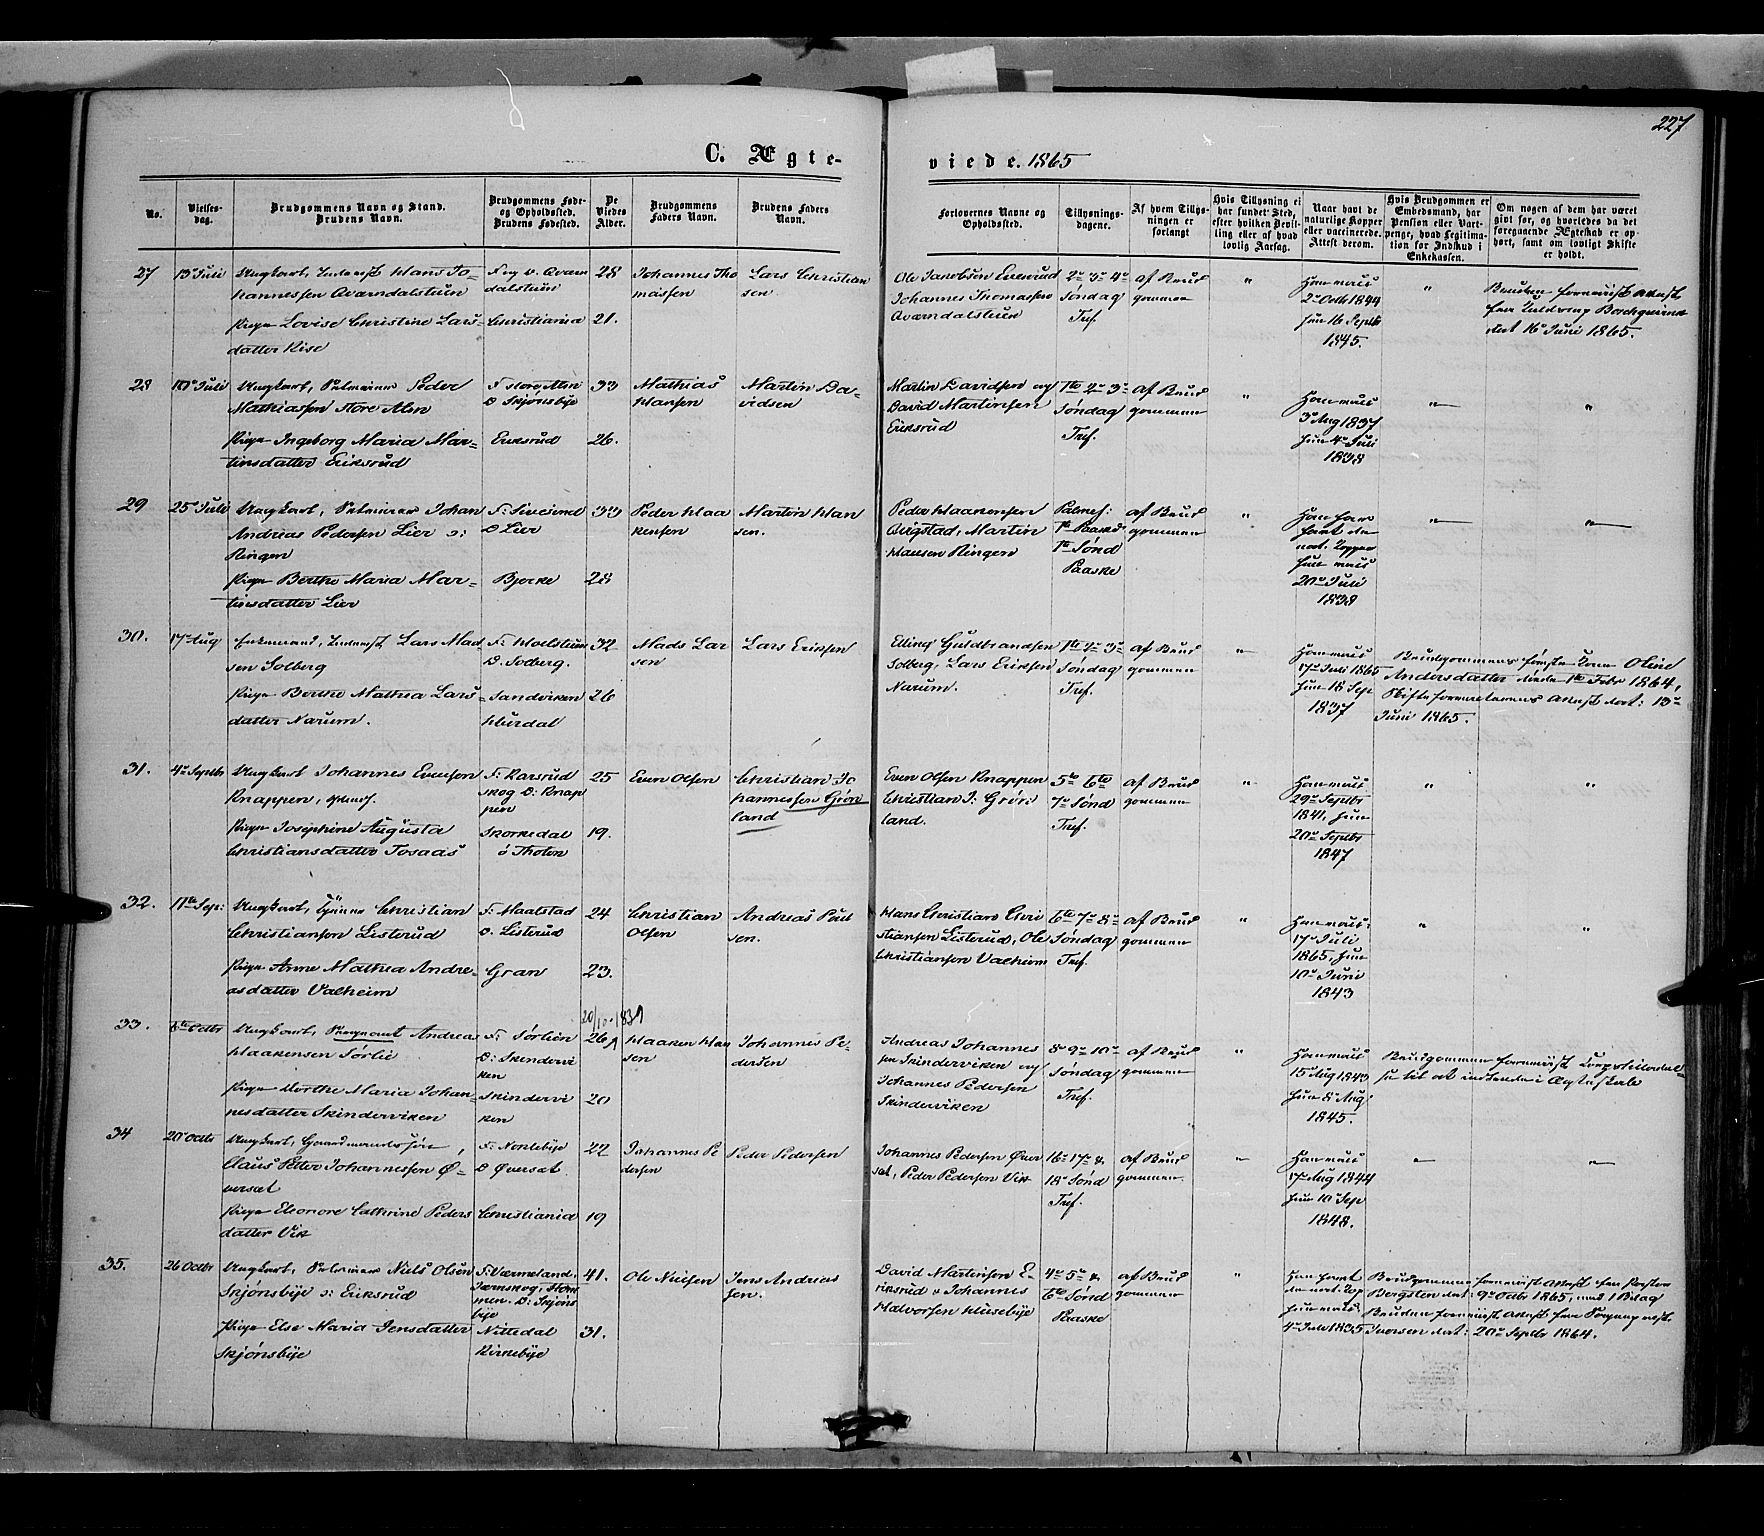 227
C. Ægte-
viede. 1865
No.
Vielses-
dag.
Brudgommens Navn og Stand.
Brudens Navn.
Brudgommens Føde-
og Opholdssted.
Brudens Fødested.
De
Viedes
Alder.
Brudgommens
Faders Navn.
Brudens Faders
Navn.
Forlovernes Navne og
Opholdssted.
Tillysnings-
dagene.
Af hvem Tillys-
ningen er
forlangt
Hvis Tillysning ei
har fundet Sted,
efter hvilken Bevil-
ling eller af hvad
lovlig Aarsag.
Naar havt de
naturlige Kopper
eller vaccinerede.
Attest derom.
Hvis Brudgommen er
Embedsmand, har
Pension eller Vart-
penge, hvad Legitima-
tion for Indskud i
Enkekassen.
Om nogen af dem har været
gift før, og hvorledes da det
foregaaende Ægteskab er op-
hørt, samt om lovligt Skifte
er holdt.
27 13de Juli Ungkarl, Inderst Hans Jo-
hannessen Qværndalstuen
Pigen Lovise Christine Lars-
datter Rise
F og O. Qværn
dalstuen
Christiania
28
21.
Johannes Tho
massen
Lars Christian
sen.
Ole Jacobsen
Johannes Thomassen
Qværndalstuen
2de 3de 4de
Søndag
Tref.
af Brud
gommen
"
Han vacc
2de Octb 1844
hun 16 Septb
1845.
"
Bruden foreviist Attest
fra
dat 16 Juni 1865.
28 10de Juli Ungkarl, Selveier Peder
Mathiassen store Alm
Pigen Ingeborg Maria Mar-
tinsdatter Eriksrud
F store Alm
O Skjønsbye
Eriksrud
33
26.
Mathias
Hansen
Martin Da-
vidsen
Martin Davidsen og
David Martinsen
Eriksrud
1ste 2de 3de
Søndag
Tref.
af Brud
gommen
"
Han vacc
3de Aug 1837
hun 4de Juli
1838
"
"
29 25de Juli Ungkarl, Selveier Johan
Andreas Pedersen Lier o:
Ringen
Pigen Berthe Maria Mar-
tinsdatter Lier
O Lier
Bjerke
33
28
Peder Haa
kensen
Martin Han
sen.
Peder Haakensen
Qvigstad, Martin
Hansen Ringen
Palmes:
1ste Paasked
1ste Sønd
Paaske
af Brud
gommen
"
hun vacc
20de Juli
1838
"
"
30. 17de Aug Enkemand, Inderst, Lars Mad
sen Solberg
Pigen Berthe Mathea Lars-
datter Narum.
F: Hoelstuen
O. Solberg.
Sandviken
Hurdal
32
26
Mads Lar
sen
Lars Eriksen
Elling Guldbrandsen
Solberg, Lars Eriksen
Narum.
1ste 2de 3de
Søndag
Tref.
af Brud
gommen
"
Han vacc
17de Juli 1865
hun 18 Sep
1837
Brudgommens første Kone Oline
Andersdatter døde 1ste Febr 1864,
Skifteforvalterens Attest dat: 13de
Juni 1865.
31. 4de Septbr Ungkarl Johannes Evensen
Knappen,
Pigen Josephine Augusta
Christiansdatter Tosaas
F: Karsrud
skog O: Knap
pen
Skorkedal
ø Thoten
25
19.
Even Olsen
Christian Jo
hannessen Grøn
land
Even Olsen Knappen
Christian J: Grøn
land.
5te 6te
7de Sønd
Tref.
af Brud
gommen
"
Han vacc
29de Septbr
1841, hun
20de Septbr
1847
"
"
32. 11te Sep: Ungkarl, Christian
Christiansen Listerud
Pigen Anne Mathea Andre-
asdatter Valheim
F: Maalstad
O. Listerud
Gran
24
23.
Christian
Olsen
Andreas Poul
sen.
Hans Christian Chri
stiansen Listerud, Ole
Christiansen Valheim
6te 7de 8de
Søndag
Tref.
af Brud
gommen
"
Han vacc:
17de Juli
1865, hun
10de Juni
1843
"
"
33. 8te Octbr Ungkarl, Andreas
Haakensen Sørlie
Pigen Marthe Maria Johan-
nesdatter Skinderviken
F: Sørlien
O: Skindervi
ken
Skindervi
ken
20/10 1839
26
20
Haaken Han
sen
Johannes Pe-
dersen
Andreas Johannes
sen Skinderviken og
Johannes Pedersen
Skinderviken
8de 9de 10de
Søndag
Tref.
af Brud
gommen
"
Han vacc
15de Aug 1843
hun 8de Aug:
1845.
Brudgommen foreviist Kongs Tilladel-
se til at indtræde i Ægteskab
34 20de Octbr Ungkarl, Gaardmandssøn,
Claus Petter Johannessen Ø-
verset
Pigen Eleonore Cathrine Peders
datter Vik
F: Narlebye
O Øverset
Christiania
22
19
Johannes Pe
dersen
Peder Pedersen
Johannes Pedersen Øver
set, Peder Pedersen Vik
16de 17de &
18de Sønd
Tref.
af Brud
gommen.
"
Han vacc
17de Aug 1844
hun 10de Sep
1848.
"
"
35. 26 Octbr Ungkarl, Selveier Niels Olsen
Skjønsbye o: Eriksrud
Pigen Else Maria Jensdatter
Skjønsbye
F: Værmeland,
Jærnskog,
O: Skjøns
bye
Nittedal
Kirkebye
41.
31.
Ole Nielsen
Jens Andreas
sen.
David Martinsen E-
riksrud & Johannes
Halvorsen Husebye
4de 5te &
6te Sønd
Paaske
af Brud
gommen
"
Han havt
de nat. Kop
hun vacc.
4de Juli 1835
Brudgommen foreviist Attest fra Pastor
Bergsten dat: 9de Octbr 1865, med 1 Bilag
Bruden foreviist Attest fra Sogneprest
Iversen dat: 20de Septbr 1864.